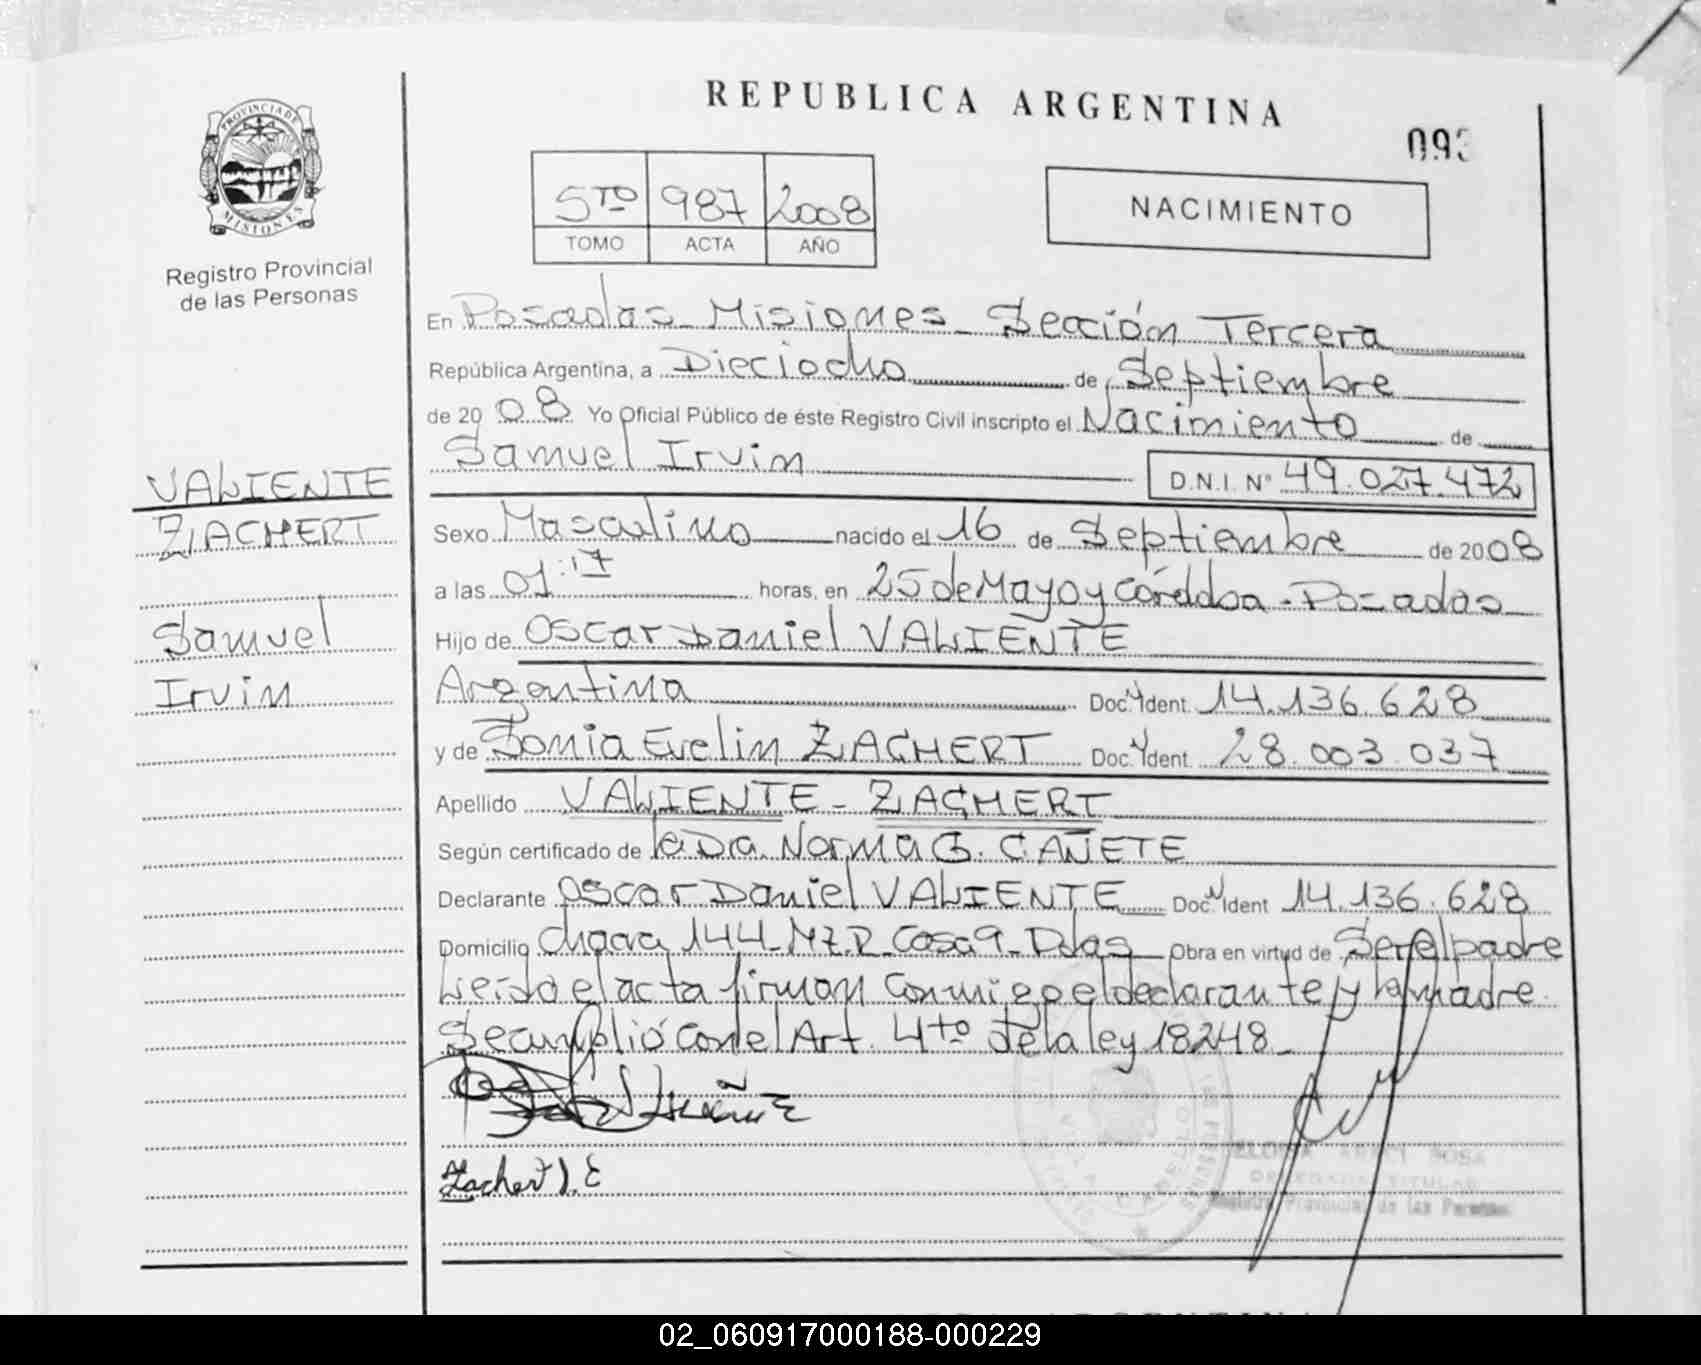 REPUBLICA ARGENTINA
093
PROVINCIA DE
MISIONES
Registro Provincial
de las Personas
5TO 987 2008
TOMO ACTA AÑO
NACIMIENTO
En Posadas Misiones Sección Tercera
República Argentina, a Dieciocho de Septiembre
de 20 08 Yo Oficial Público de éste Registro Civil inscripto el Nacimiento de
Samuel Irvin D.N.I. Nº 49.027.472
VALIENTE
ZIACHERT
Samuel
Irvin
Sexo Masculino nacido el 16 de Septiembre de 2008
a las 01:17 horas, en 25 de Mayo y Córdoba - Posadas
Hijo de Oscar Daniel VALIENTE
Argentina Doc. Ident. 14.136.628
y de Sonia Evelin ZACHERT Doc. Ident. 28.003.037
Apellido VALIENTE - ZACHERT
Según certificado de la Dra. Norma G. CAÑETE
Declarante Oscar Daniel VALIENTE Doc. Ident 14.136.628
Domicilio Chacra 144 - MZ.D Casa 9 - Pdas Obra en virtud de Ser el padre
Leída el acta firman conmigo el declarante y la madre.
Se cumplió con el Art. 4to de la ley 18248 -
Zachert S. E
Registro Provincial de las Personas
02_060917000188-000229